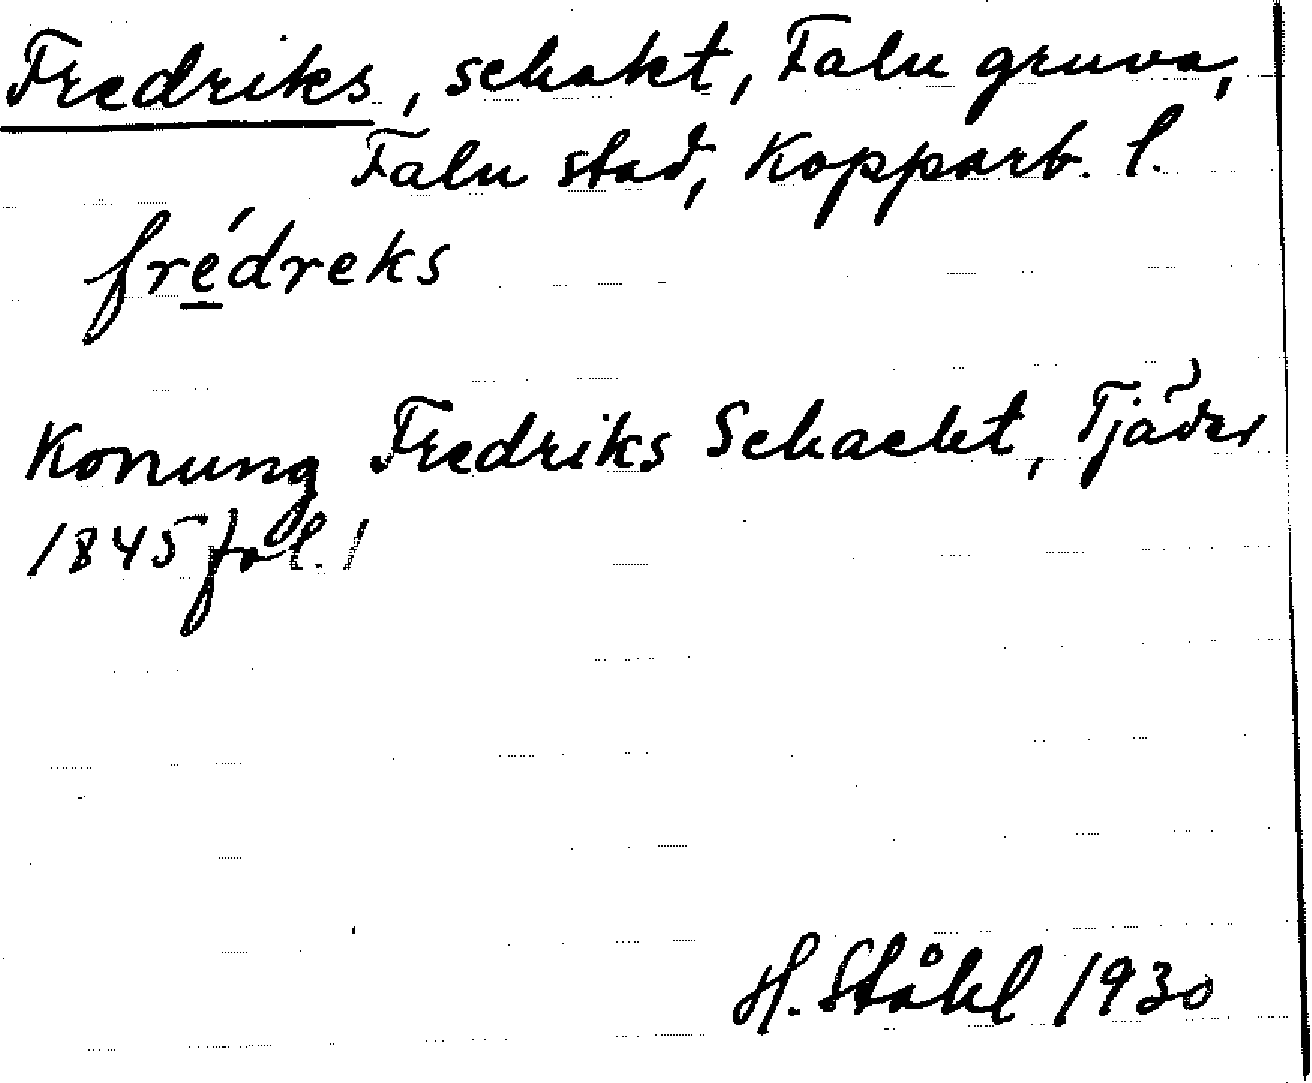 Fredriks, schakt, Falu gruva,
Falu stad, Kopparb. l.
fré̲dreks
Konung Fredriks Schacht, Tjäder
1845 fol. 1
H. Ståhl 1930